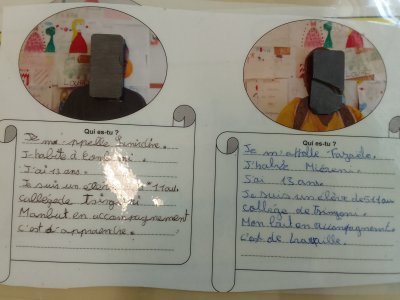 Qui es-tu ?
Je me appelle
J'habite à
J'ai 13 ans.
Je suis un élève
collège de Tsingoni.
Mon but en accompagnement
c'est d'apprendre.
Qui es-tu ?
Je m'appelle
J'habite
J'ai 13 ans.
Je suis un élève de
collège de Tsingoni.
Mon but en accompagnement
c'est de travaille.